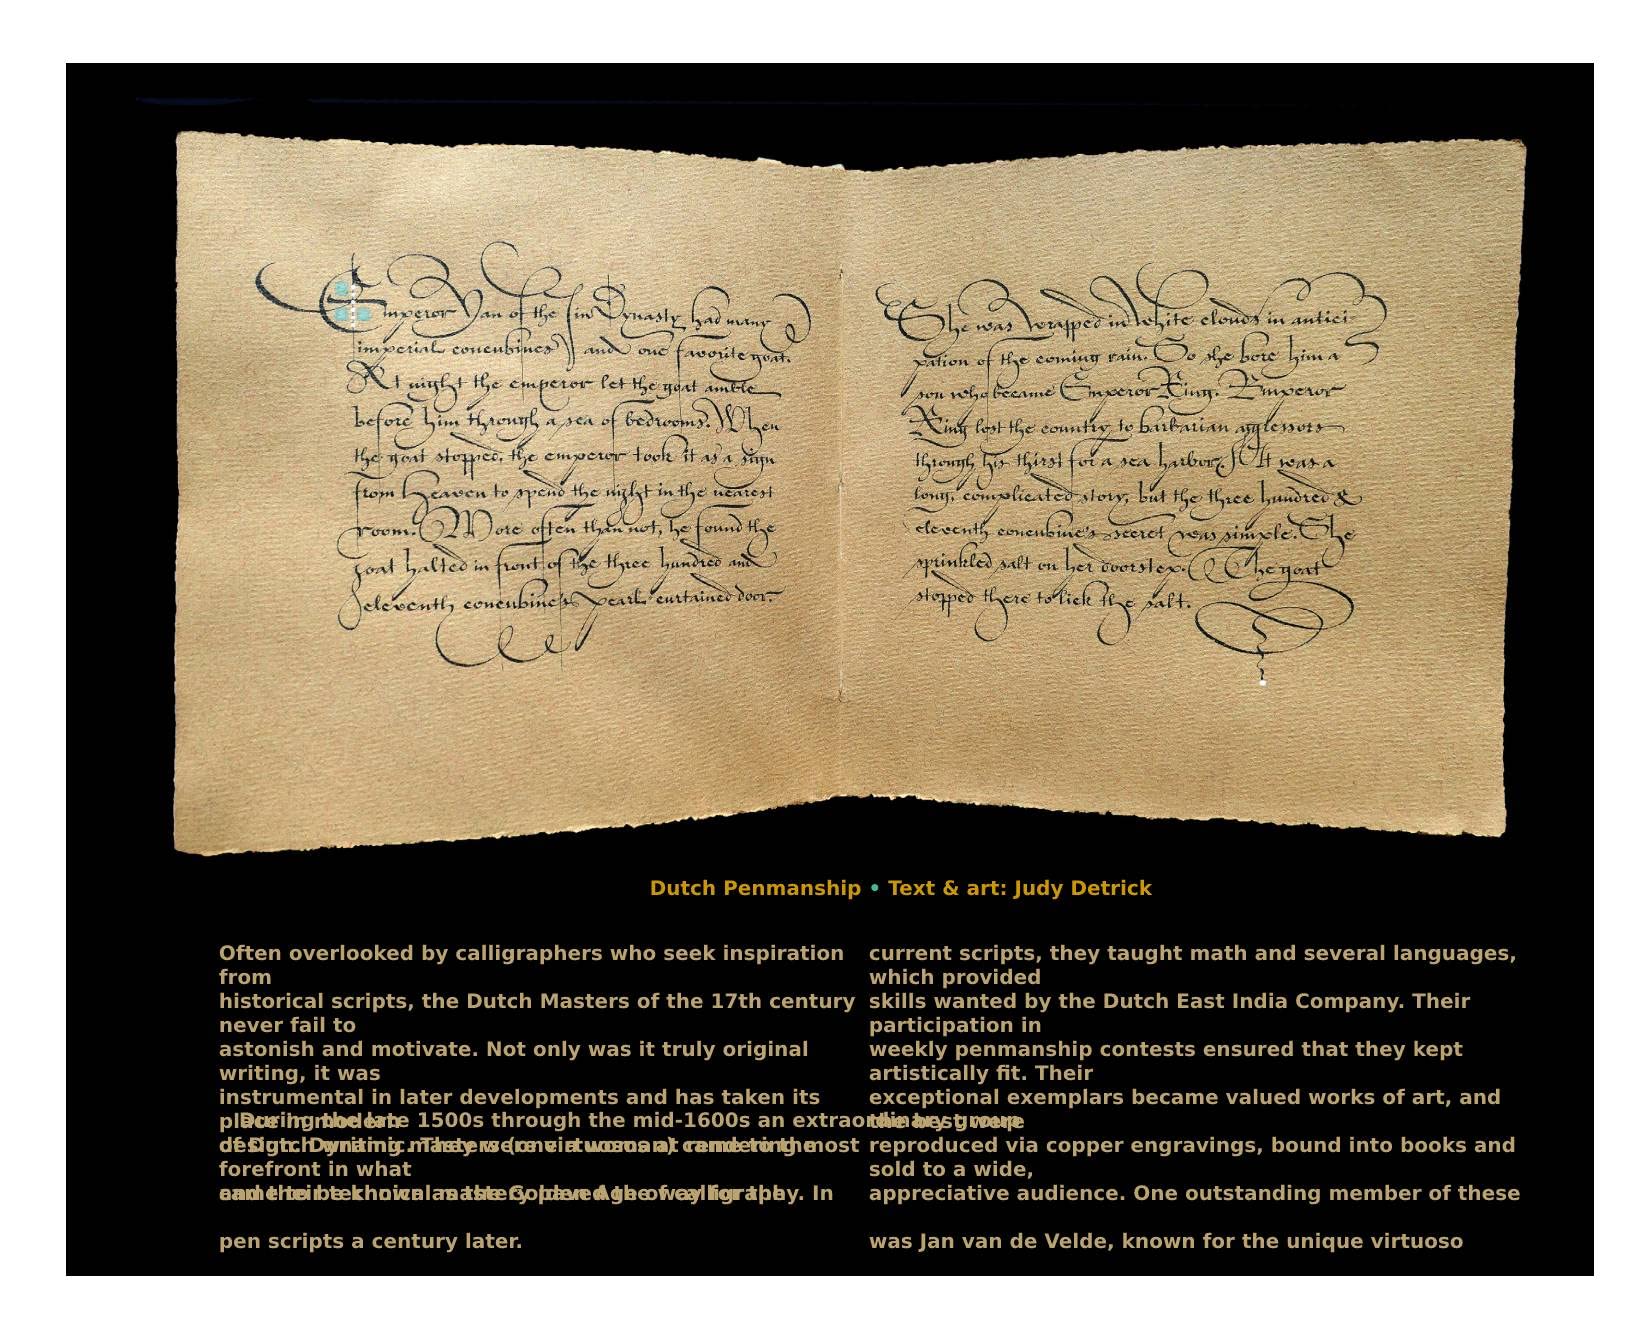 Emperor Yan of the Jin Dynasty had many
imperial concubines and one favorite goat.
At night the emperor let the goat amble
before him through a sea of bedrooms. When
the goat stopped, the emperor took it as a sign
from Heaven to spend the night in the nearest
room. More often than not, he found the
goat halted in front of the three hundred and
eleventh concubine's pearl-curtained door.
She was wrapped in white clouds in antici-
pation of the coming rain. So she bore him a
son who became Emperor Xing. Emperor
Xing lost the country to barbarian agglessors
through his thirst for a sea harbor. It was a
long, complicated story, but the three hundred &
eleventh concubine's secret was simple. She
sprinkled salt on her doorstep. The goat
stopped there to lick the salt.
Dutch Penmanship • Text & art: Judy Detrick
Often overlooked by calligraphers who seek inspiration
from
historical scripts, the Dutch Masters of the 17th century
never fail to
astonish and motivate. Not only was it truly original
writing, it was
instrumental in later developments and has taken its
place in modern
During the late 1500s through the mid-1600s an extraordinary group
design. Dynamic
of Dutch writing masters (one a woman) came to the
forefront in what
came to be known as the Golden Age of calligraphy. In
pen scripts a century later.
current scripts, they taught math and several languages,
which provided
skills wanted by the Dutch East India Company. Their
participation in
weekly penmanship contests ensured that they kept
artistically fit. Their
exceptional exemplars became valued works of art, and
the best were
reproduced via copper engravings, bound into books and
sold to a wide,
appreciative audience. One outstanding member of these
was Jan van de Velde, known for the unique virtuoso